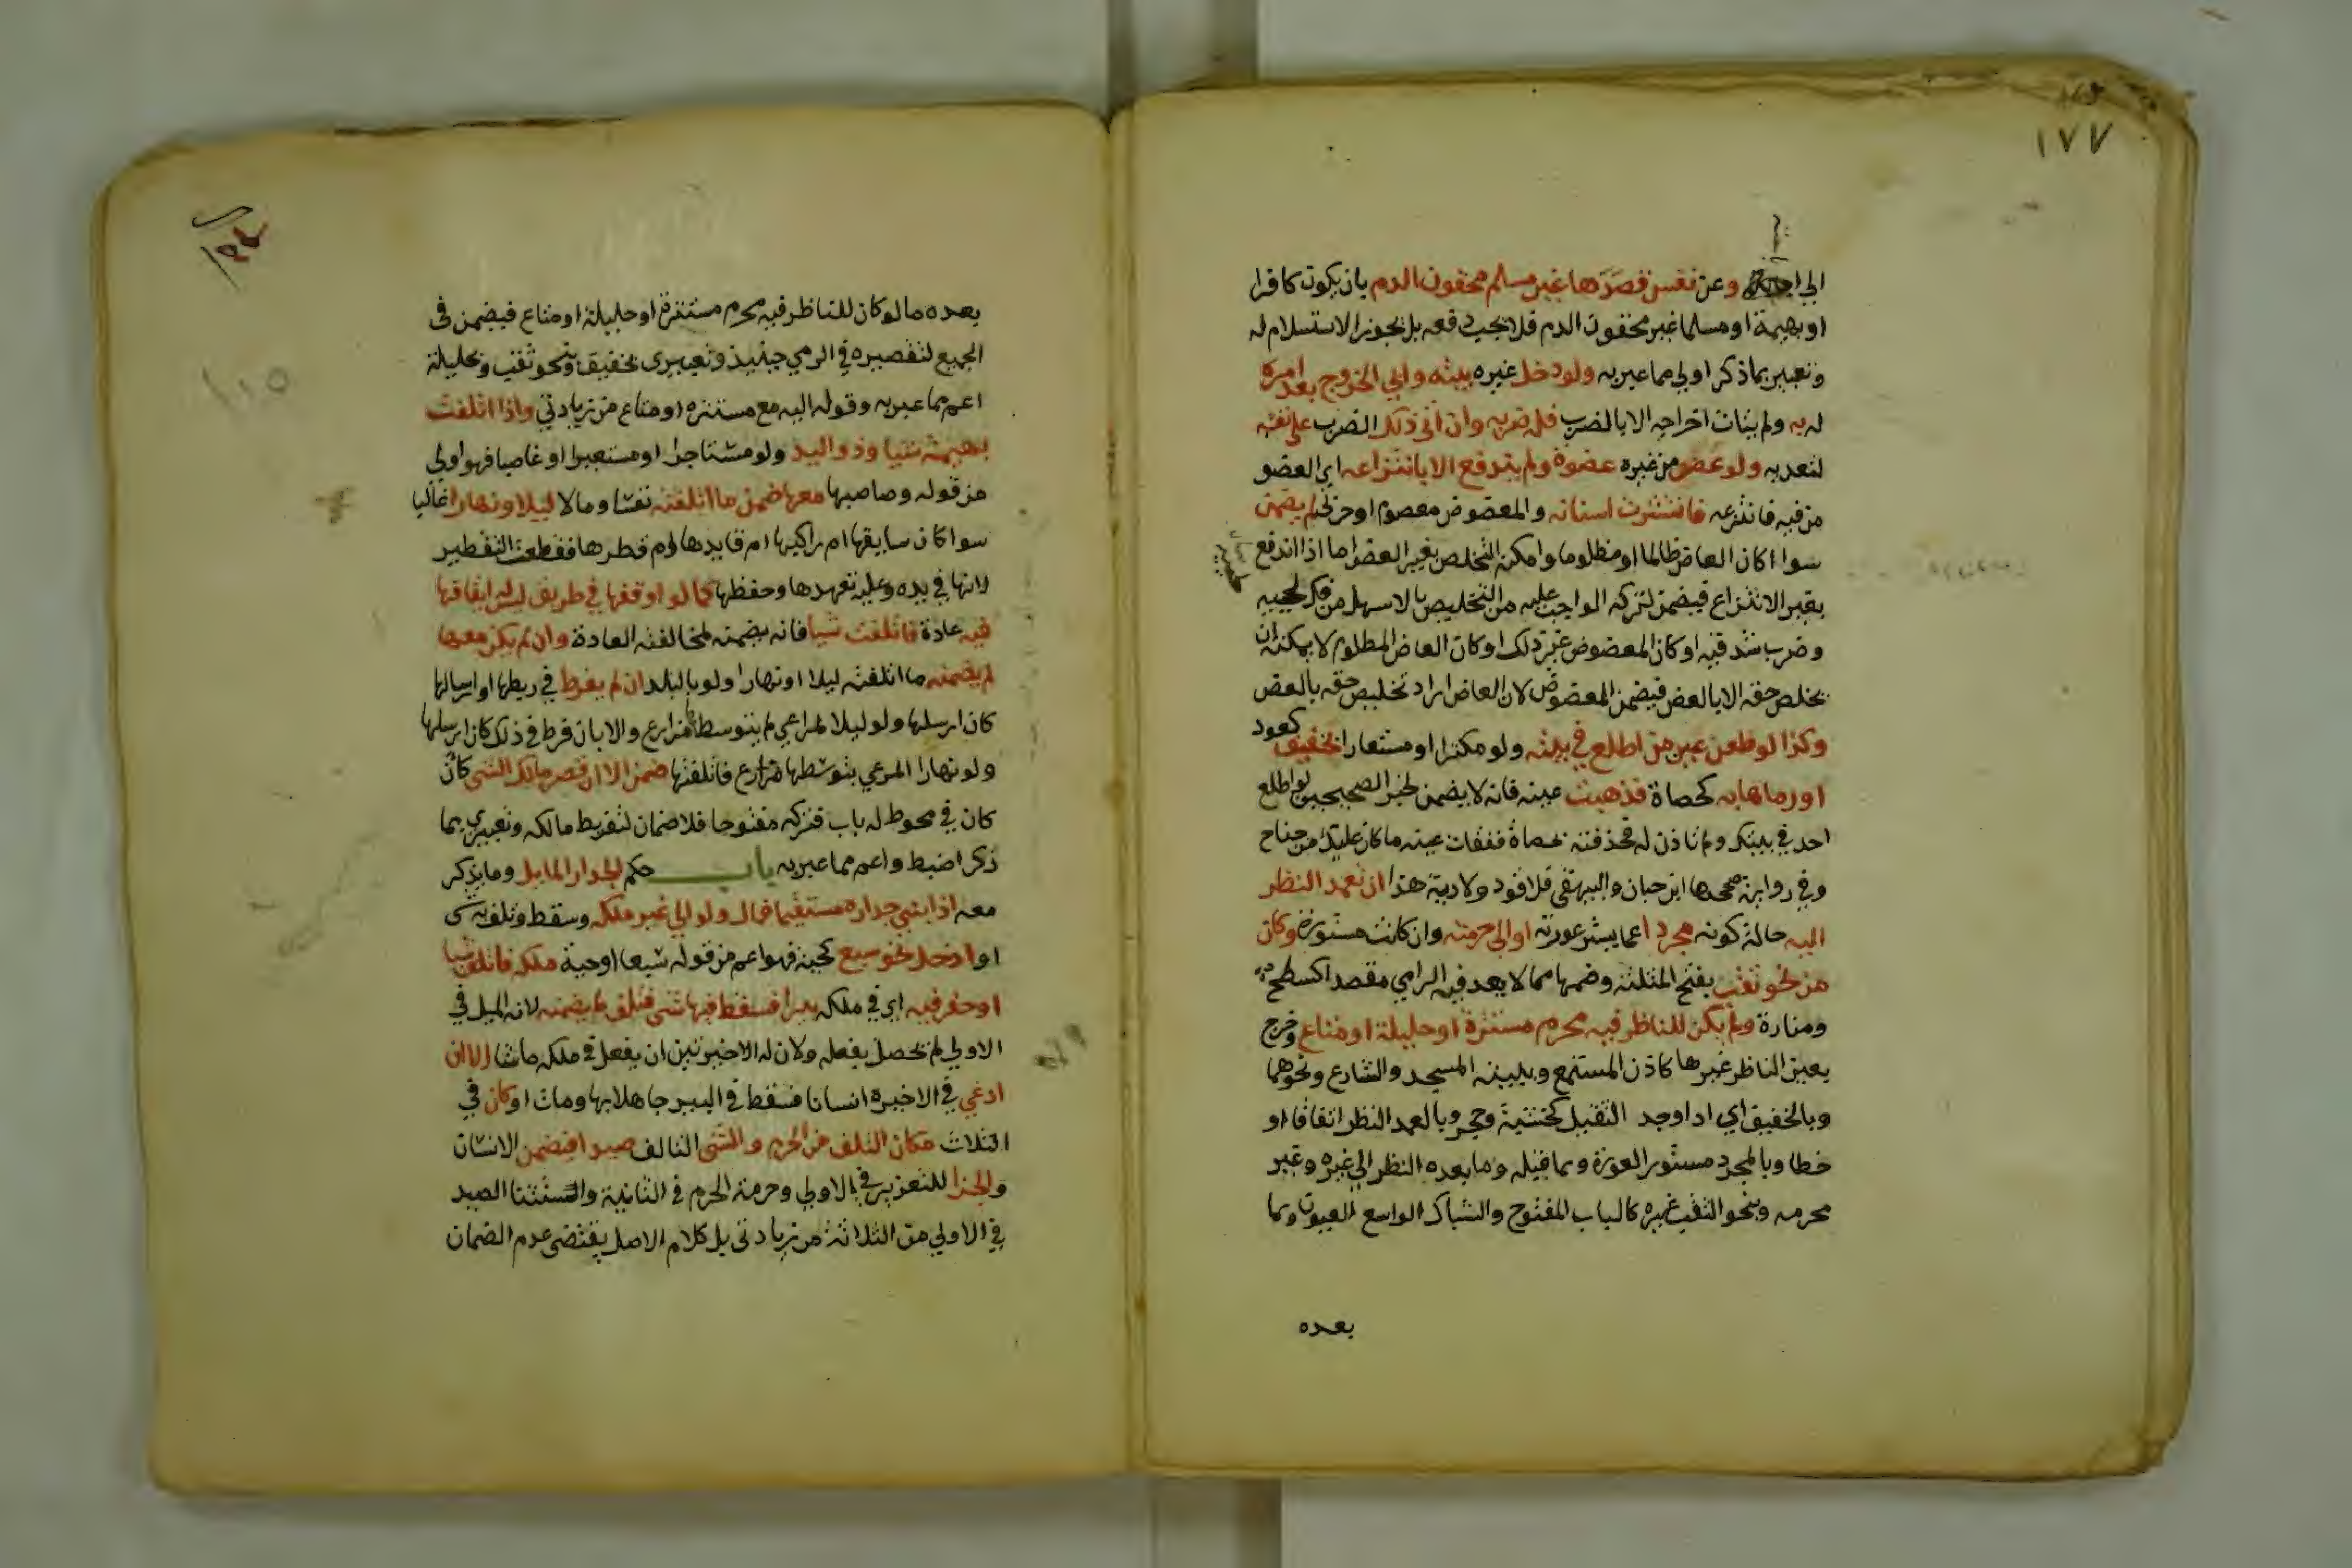 ١٧٧
الي وعن نفس قصدها غير مسلم محقون الدم بان يكون كافرا
او بهيمة او مسلما غير محقون الدم فلا يجب دفعه بل يجوز الاستسلام له
وتعبير بما ذكر اولي مما عبر به ولو دخل غيره بيته وابي الخروج بعد امره
له به ولم يتات اخراجه الا بالضرب فله ضربه وان اتي ذلك الضرب علي نفسه
لتعديه ولو عض من غيره عضوه ولم يندفع الا بانتزاعه اي العضو
من فيه فانتزعه فانتثرت اسنانه والمعضوض معصوم او حربي لم يضمن
سوا اكان العاض ظالما او مظلوما وامكن التخلص بغير العض اما اذا اندفع
بغير الانتزاع فيضمن لتركه الواجب عليه من التخليص بالاسهل من فك لحييه
وضرب شدقيه او كان المعضوض غير ذلك او كان العاض المظلوم لا يمكنه ان
يخلص حقه الا بالعض فيضمن المعضوض لان العاض اراد تخليص حقه بالعض
وكذا لو طعن عين من اطلع في بيته ولو مكترا او مستعارا بخفيف كعود
او رماها به كحصاة فذهبت عينه فانه لا يضمن لخبر الصحيحين لو اطلع
احد في بيتك ولم تاذن له فحذفته بحصاة ففقات عينه ما كان عليك من جناح
وفي رواية صححها ابن حبان والبيهقي فلا قود ولا دية هذا ان تعمد النظر
اليه حالة كونه مجردا عما يستر عورته او الي حرمته وان كانت مستورة وكان
من نحو ثقب بفتح المثلثة وضمها مما لا يعد فيه الرامي مقصرا كسطح
ومنارة ولم يكن للناظر فيه محرم مستترة او حليلة او متاع وخرج
بعين الناظر غيرها كاذن المستمع وببيته المسجد والشارع ونحوهما
وبالخفيف اي اذا وجد الثقيل كخشبة وحجر وبالعمد النظر اتفاقا او
خطا وبالمجرد مستور العورة وبما قبله وما بعده النظر الي غيره وغير
محرمه وبنحو الثقب غيره كالباب المفتوح والشباك الواسع العيون وبما
بعده
بعده ما لو كان للناظر فيه محرم مستترة او حليلة او متاع فيضمن في
الجميع لتقصيره في الرمي حينئذ وتعبيري بخفيف وبنحو ثقب وبحليلة
اعم مما عبر به وقوله اليه مع مستتره او متاع من زيادتي واذا اتلفت
بهيمة شيا وذو اليد ولو مستاجرا او مستعيرا او غاصبا فهو اولي
من قوله وصاحبها معها ضمن ما اتلفته نفسا ومالا ليلا ونهارا غالبا
سوا كان سايقها ام راكبها ام قايدها ام قطرها فقطعت التقطير
لانها في يده وعليه تعهدها وحفظها كما لو اوقفها في طريق ليس له ايقافها
فيه عادة فاتلفت شيا فانه يضمنه لمخالفته العادة وان لم يكن معها
لم يضمنه ما اتلفته ليلا او نهارا ولو بالبلد ان لم يفرط في ربطها او ارسالها
كان ارسلها ولو ليلا لمراعي لم يتوسطها مزارع والا بان فرط في ذلك كان ارسلها
ولو نهارا المرعي بتوسطها مزارع فاتلفتها ضمن الا ان قصر مالك الشي كان
كان في محوط له باب فتركه مفتوحا فلا ضمان لتفريط مالكه وتعبيري بما
ذكر اضبط واعم مما عبر به باب حكم الجدار المايل وما يذكر
معه اذا بني جداره مستقيما فمال ولو الي غير ملكه وسقط وتلف به شي
او ادخل نحو سبع كحية فهو اعم من قوله سبعا او حية ملكه فاتلف شيا
او حفر فيه اي في ملكه بيرا فسقط فيها شي فتلف لم يضمنه لانه الميل في
الاولي لم يحصل بفعله ولان له الاخيرتين ان يفعل في ملكه ما شا الا ان
ادعي في الاخيرة انسانا فسقط في البير جاهلا بها ومات او كان في
الثلاث مكان التلف من الحرم والشي التالف صيدا فيضمن الانسان
والجزا للتعزير في الاولي وحرمة الحرم في الثانية واستثنا الصيد
في الاولي من الثلاثة من زيادتي بل كلام الاصل يقتضي عدم الضمان